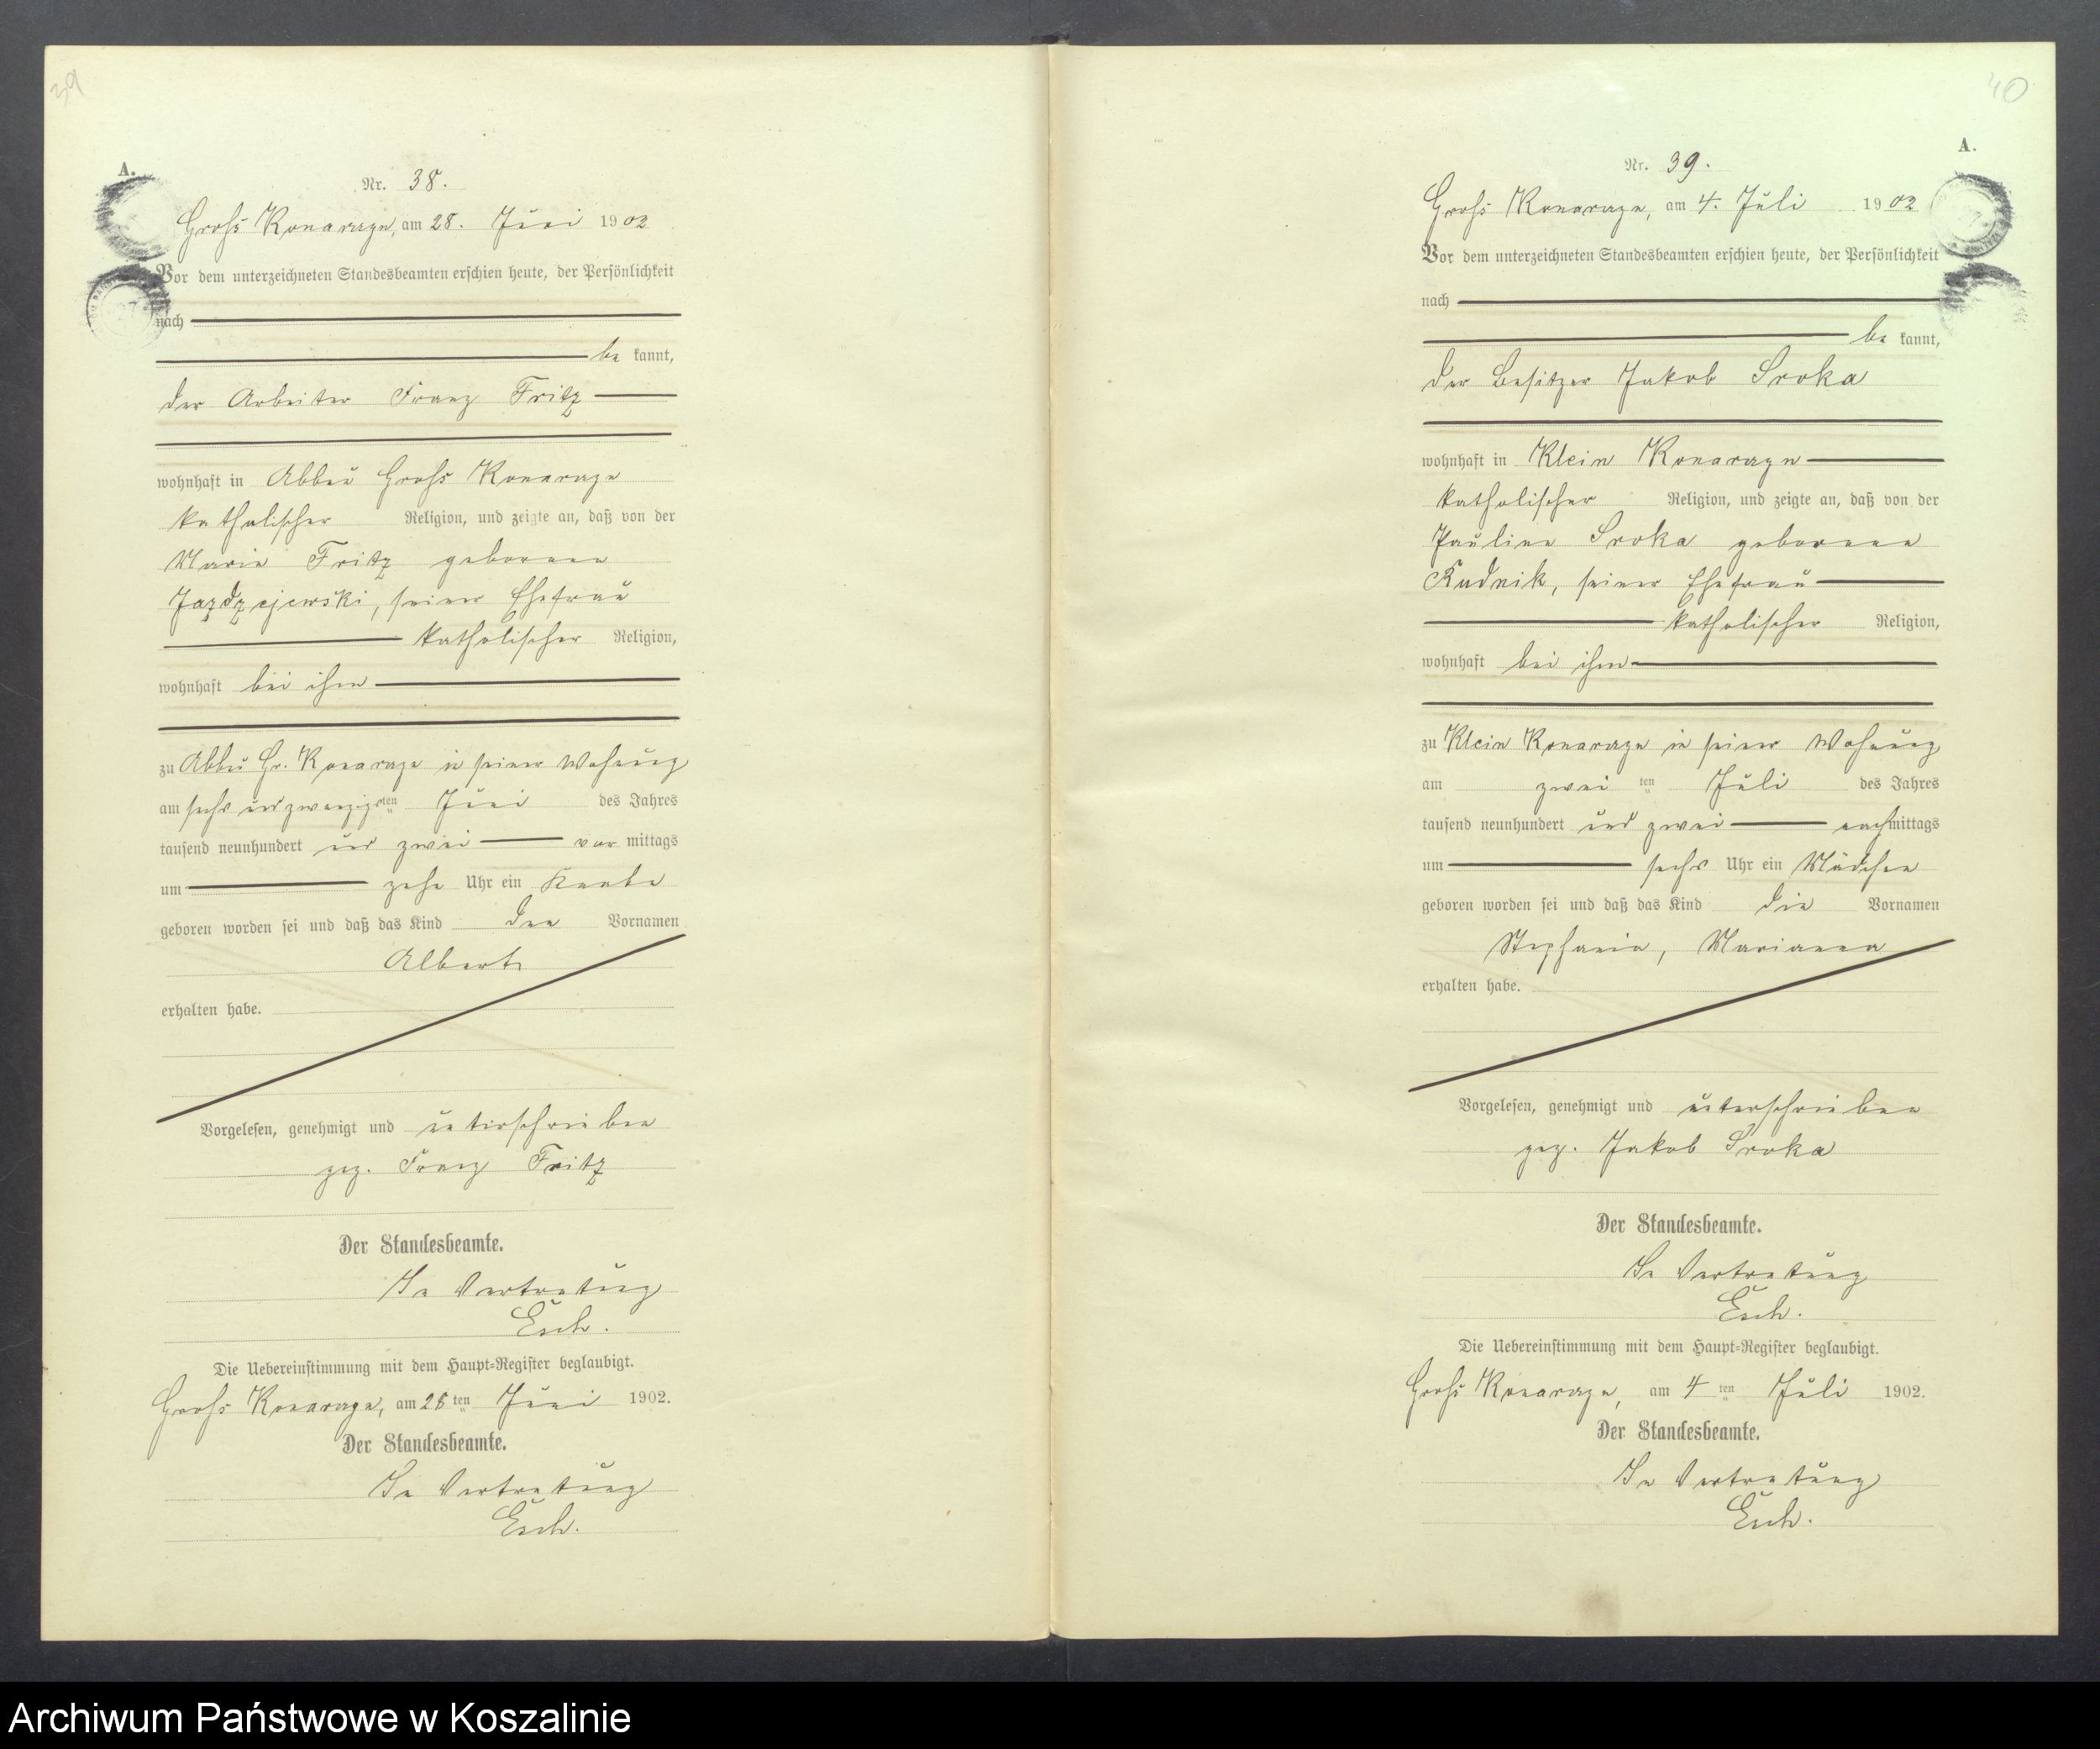 39
A.
Nr. 38.
Groß Konarczyn, am 28. Juni 1902
Vor dem unterzeichneten Standesbeamten erschien heute, der Persönlichkeit
nach
be kannt,
der Arbeiter Franz Fritz
wohnhaft in Abbau Groß Konarczyn
katholischer Religion, und zeigte an, daß von der
Marie Fritz geborenen
Jazdzejewski, seiner Ehefrau
katholischer Religion,
wohnhaft bei ihm
zu Abbau Gr. Konarczyn in seiner Wohnung
am sechs und zwanzigsten Juni des Jahres
tausend neunhundert und zwei vor mittags
um zehn Uhr ein Knabe
geboren worden sei und daß das Kind den Vornamen
Albert
erhalten habe.
Vorgelesen, genehmigt und unterschrieben
gez. Franz Fritz
Der Standesbeamte.
In Vertretung
Esch.
Die Uebereinstimmung mit dem Haupt-Register beglaubigt.
Groß Konarczyn, am 28 ten Juni 1902.
Der Standesbeamte.
In Vertretung
Esch.
40
A.
Nr. 39.
Groß Konarczyn, am 4. Juli 1902
Vor dem unterzeichneten Standesbeamten erschien heute, der Persönlichkeit
nach
be kannt,
der Besitzer Jakob Sroka
wohnhaft in Klein Konarczyn
katholischer Religion, und zeigte an, daß von der
Pauline Sroka geborenen
Rudnik, seiner Ehefrau
katholischer Religion,
wohnhaft bei ihm
zu Klein Konarczyn in seiner Wohnung
am zwei ten Juli des Jahres
tausend neunhundert und zwei nachmittags
um sechs Uhr ein Mädchen
geboren worden sei und daß das Kind die Vornamen
Stephanie, Marianna
erhalten habe.
Vorgelesen, genehmigt und unterschrieben
gez. Jakob Sroka
Der Standesbeamte.
In Vertretung
Esch.
Die Uebereinstimmung mit dem Haupt-Register beglaubigt.
Groß Konarczyn, am 4 ten Juli 1902.
Der Standesbeamte.
In Vertretung
Esch.
Archiwum Państwowe w Koszalinie